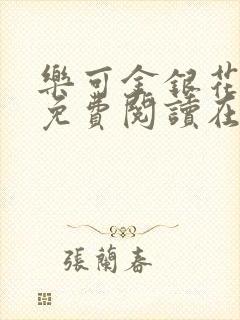 樂可金銀花
免費閱讀在
張蘭春